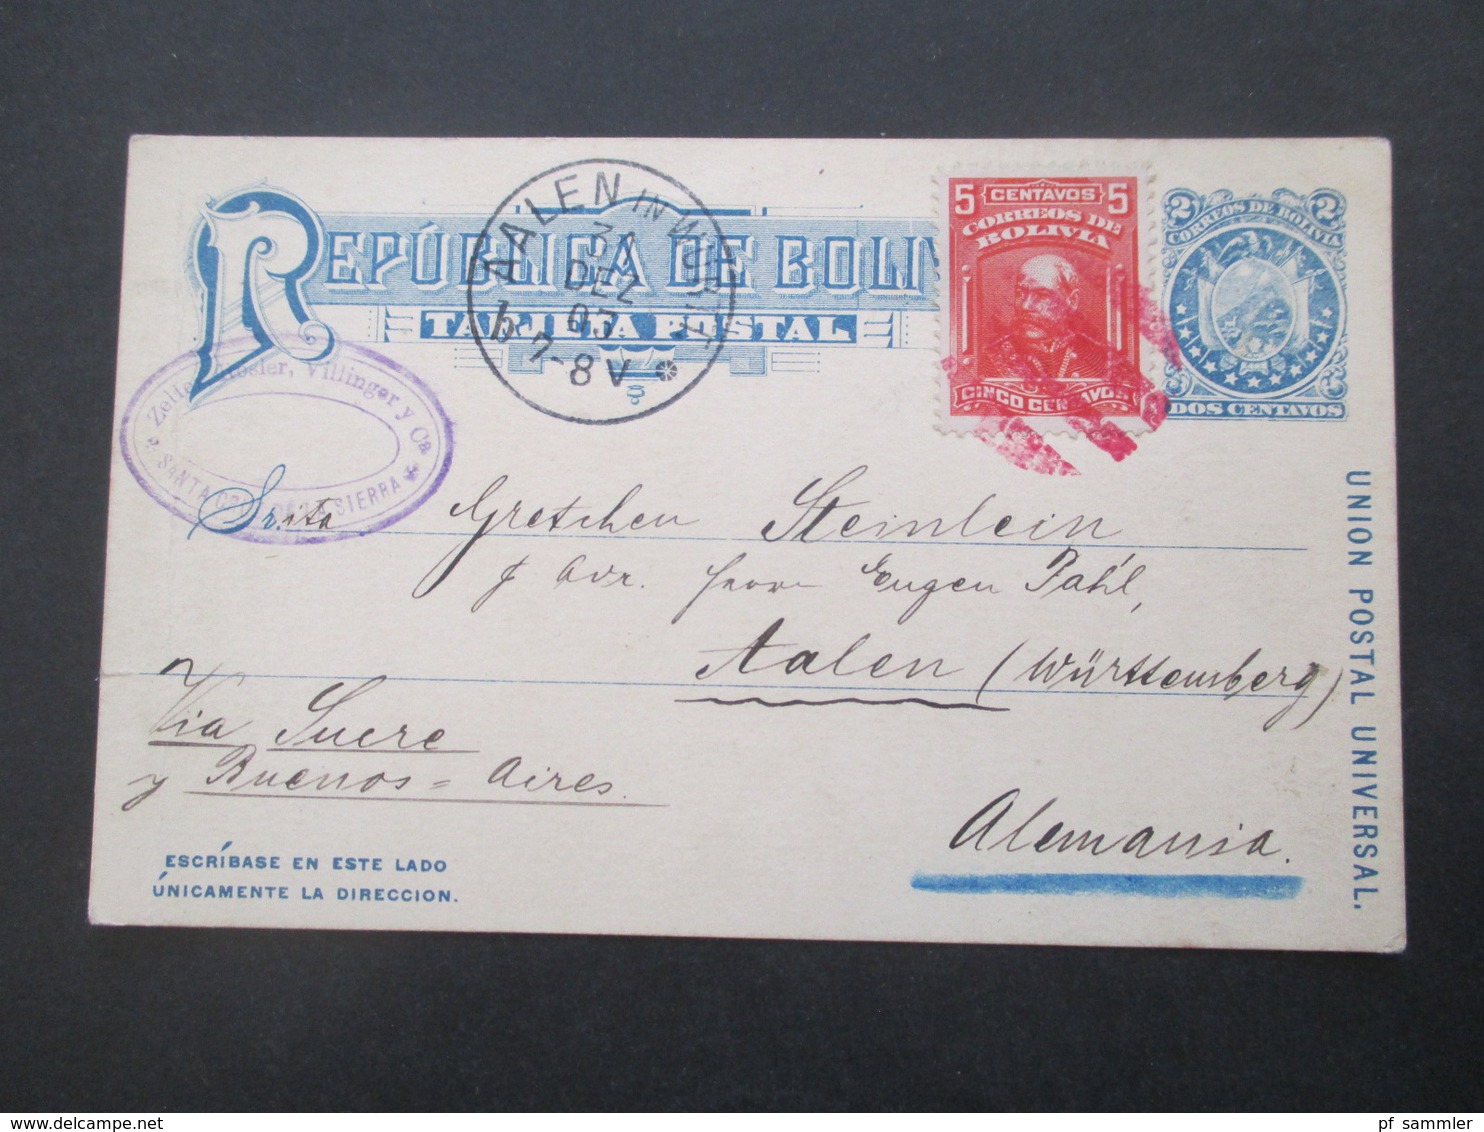 REPÚBLICA DE BOLIV
TARJETA POSTAL
AALEN IN WÜRTT
31
DEZ
03
b 7-8 V
5 CENTAVOS 5
CORREOS DE
BOLIVIA
CINCO CENTAVOS
2 2
CORREOS DE BOLIVIA
DOS CENTAVOS
Zeller, Mosler, Villinger y Ca
SANTA CRUZ DE LA SIERRA
Sr.ita Gretchen Steinlein
Adr. Herrn Eugen Pahl,
Aalen (Württemberg)
Via Sucre
y Buenos=Aires.
Alemania.
ESCRÍBASE EN ESTE LADO
ÚNICAMENTE LA DIRECCION.
UNION POSTAL UNIVERSAL.
delcampe.net
pf_sammler